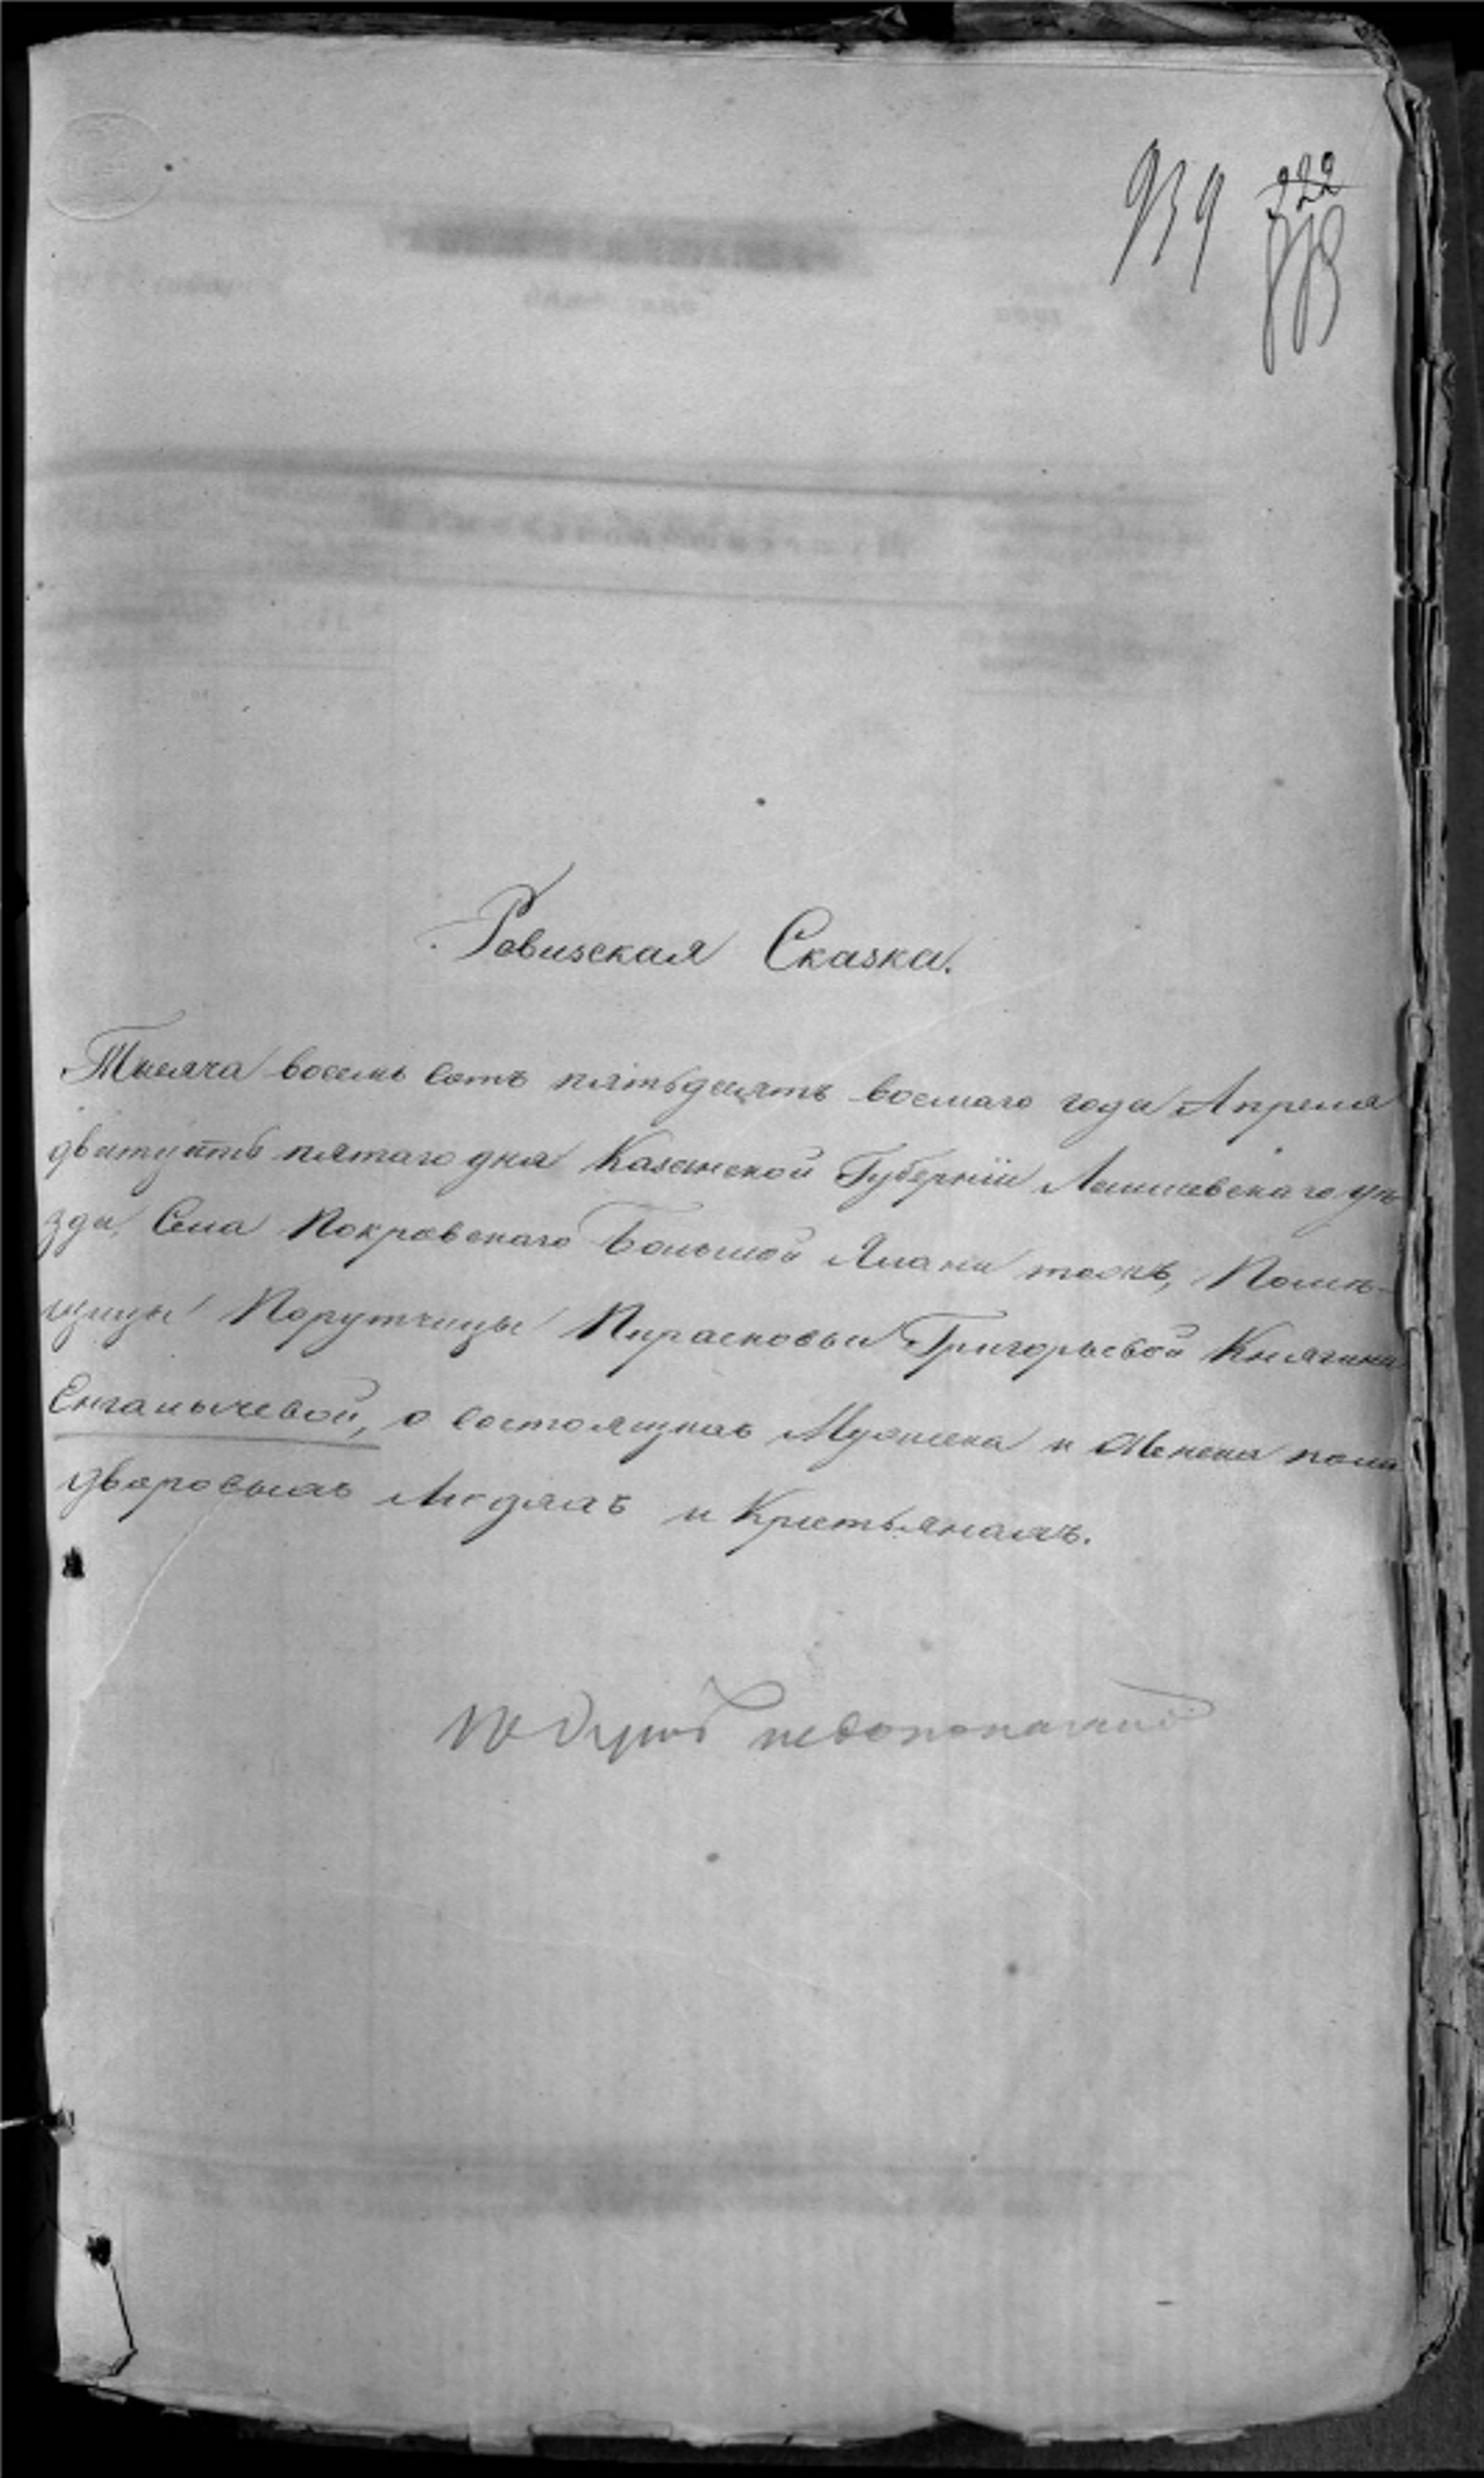 939 222
Ревизская Сказка.
Тысяча восемь сотъ пятьдесятъ восмаго года Апреля
дватцать пятаго дня Казанской Губерніи Лаишевскаго уѣ-
зда, Села Покровскаго Большой Елани тожъ, Помѣ-
щицы Порутчицы Парасковьи Григорьевой Княгини
Енгалычевой, о состоящихъ Мужеска и Женска пола
дворовыхъ Людяхъ и Крестьянахъ.